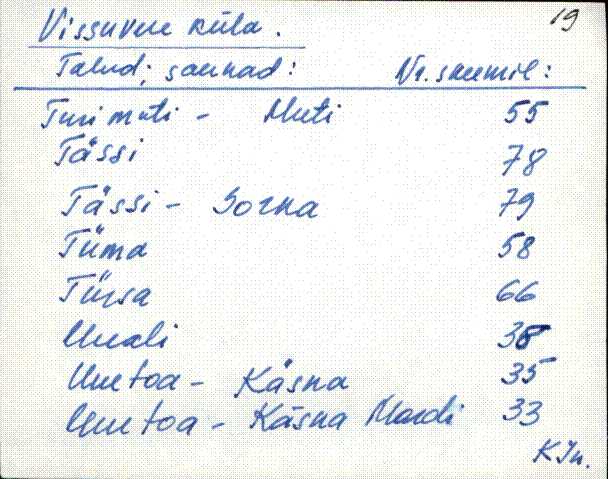 19
Vissuvere küla.
Talud; saunad: Nr. skeemil:
Turi mati - Muti 55
Tässi 78
Tässi - Sorna 79
Tüma 58
Türsa 66
Uueali
Uuetoa - Käsna 35
Uuetoa - Käsna Mardi 33
K Jn.